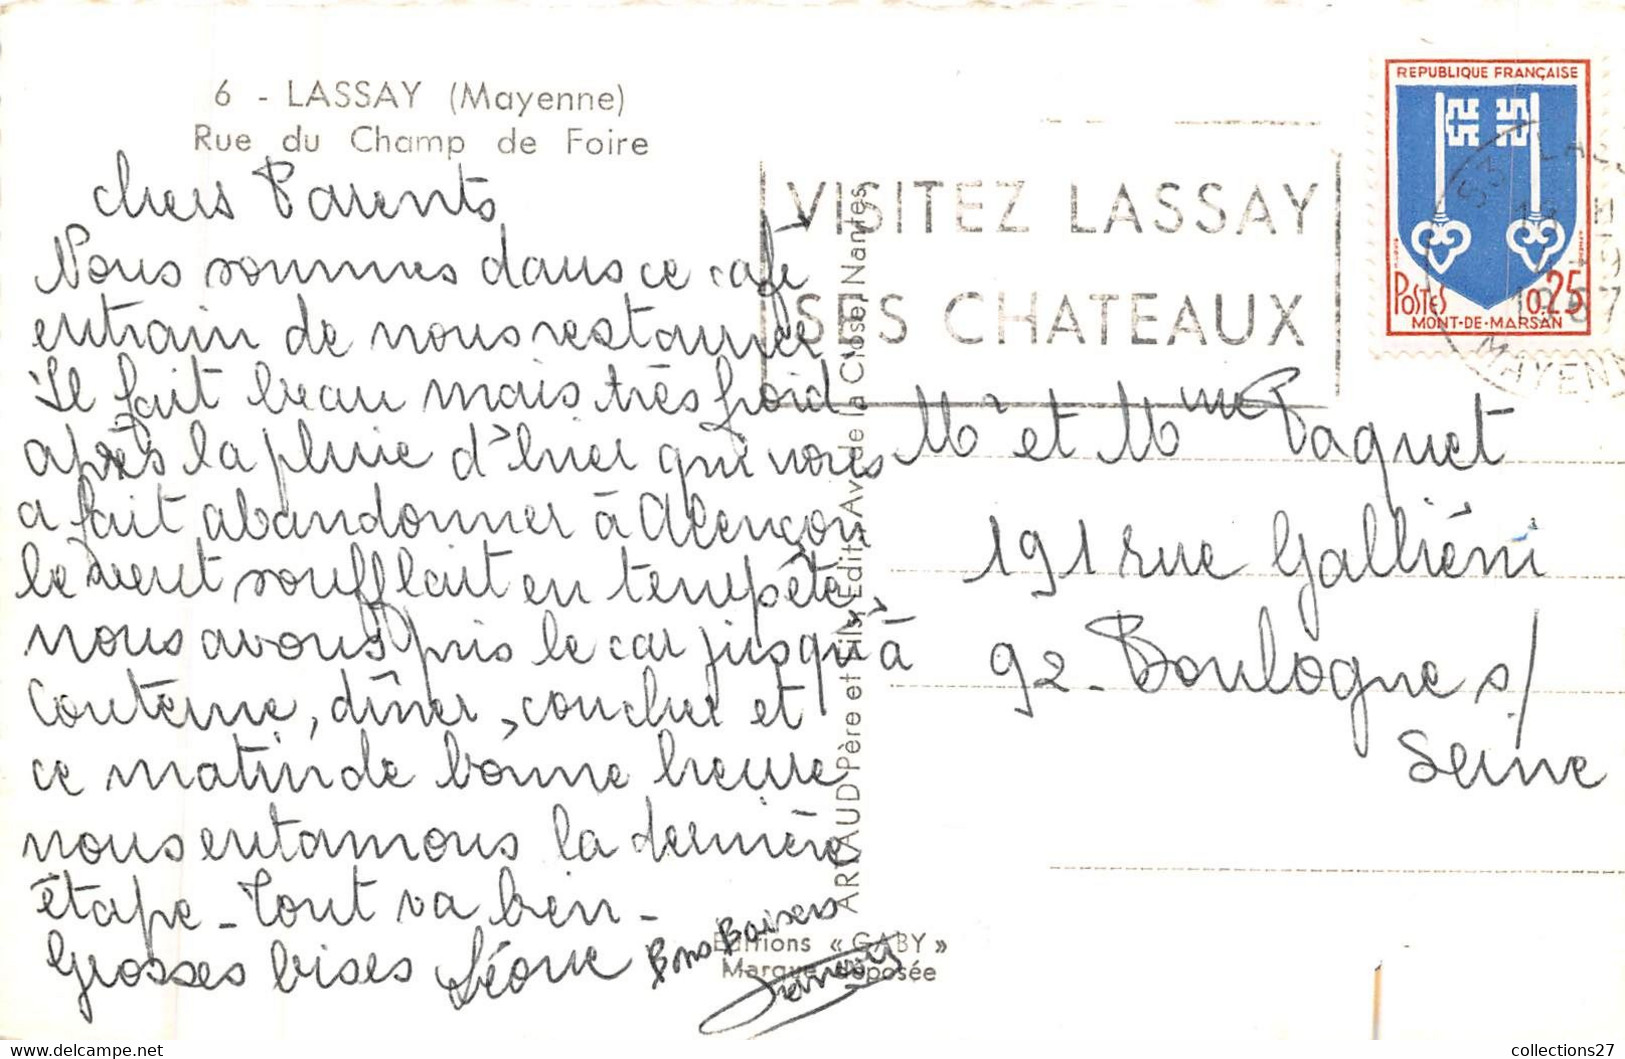 6 - LASSAY (Mayenne)
Rue du Champ de Foire
chers Parents
Nous sommes dans ce café
entrain de nous restaurer
Il fait beau mais très froid
après la pluie d'hier qui nous
a fait abandonner à Alençon
le vent soufflait en tempête
nous avons pris le car jusqu'à
Couterne, dîner, coucher et
ce matin de bonne heure
nous entamons la dernière
étape - Tout va bien -
Grosses bises Léone
Bons Baisers
ARTAUD Père et Fils, Edit., Av. de la Close, Nantes
Editions « GABY »
Marque déposée
VISITEZ LASSAY
SES CHATEAUX
REPUBLIQUE FRANÇAISE
POSTES 0,25
MONT-DE-MARSAN
53 LASS
MAYENN
Mr et Mme Paquet
191 rue Galliéni
92 - Boulogne s/
Seine
collections27